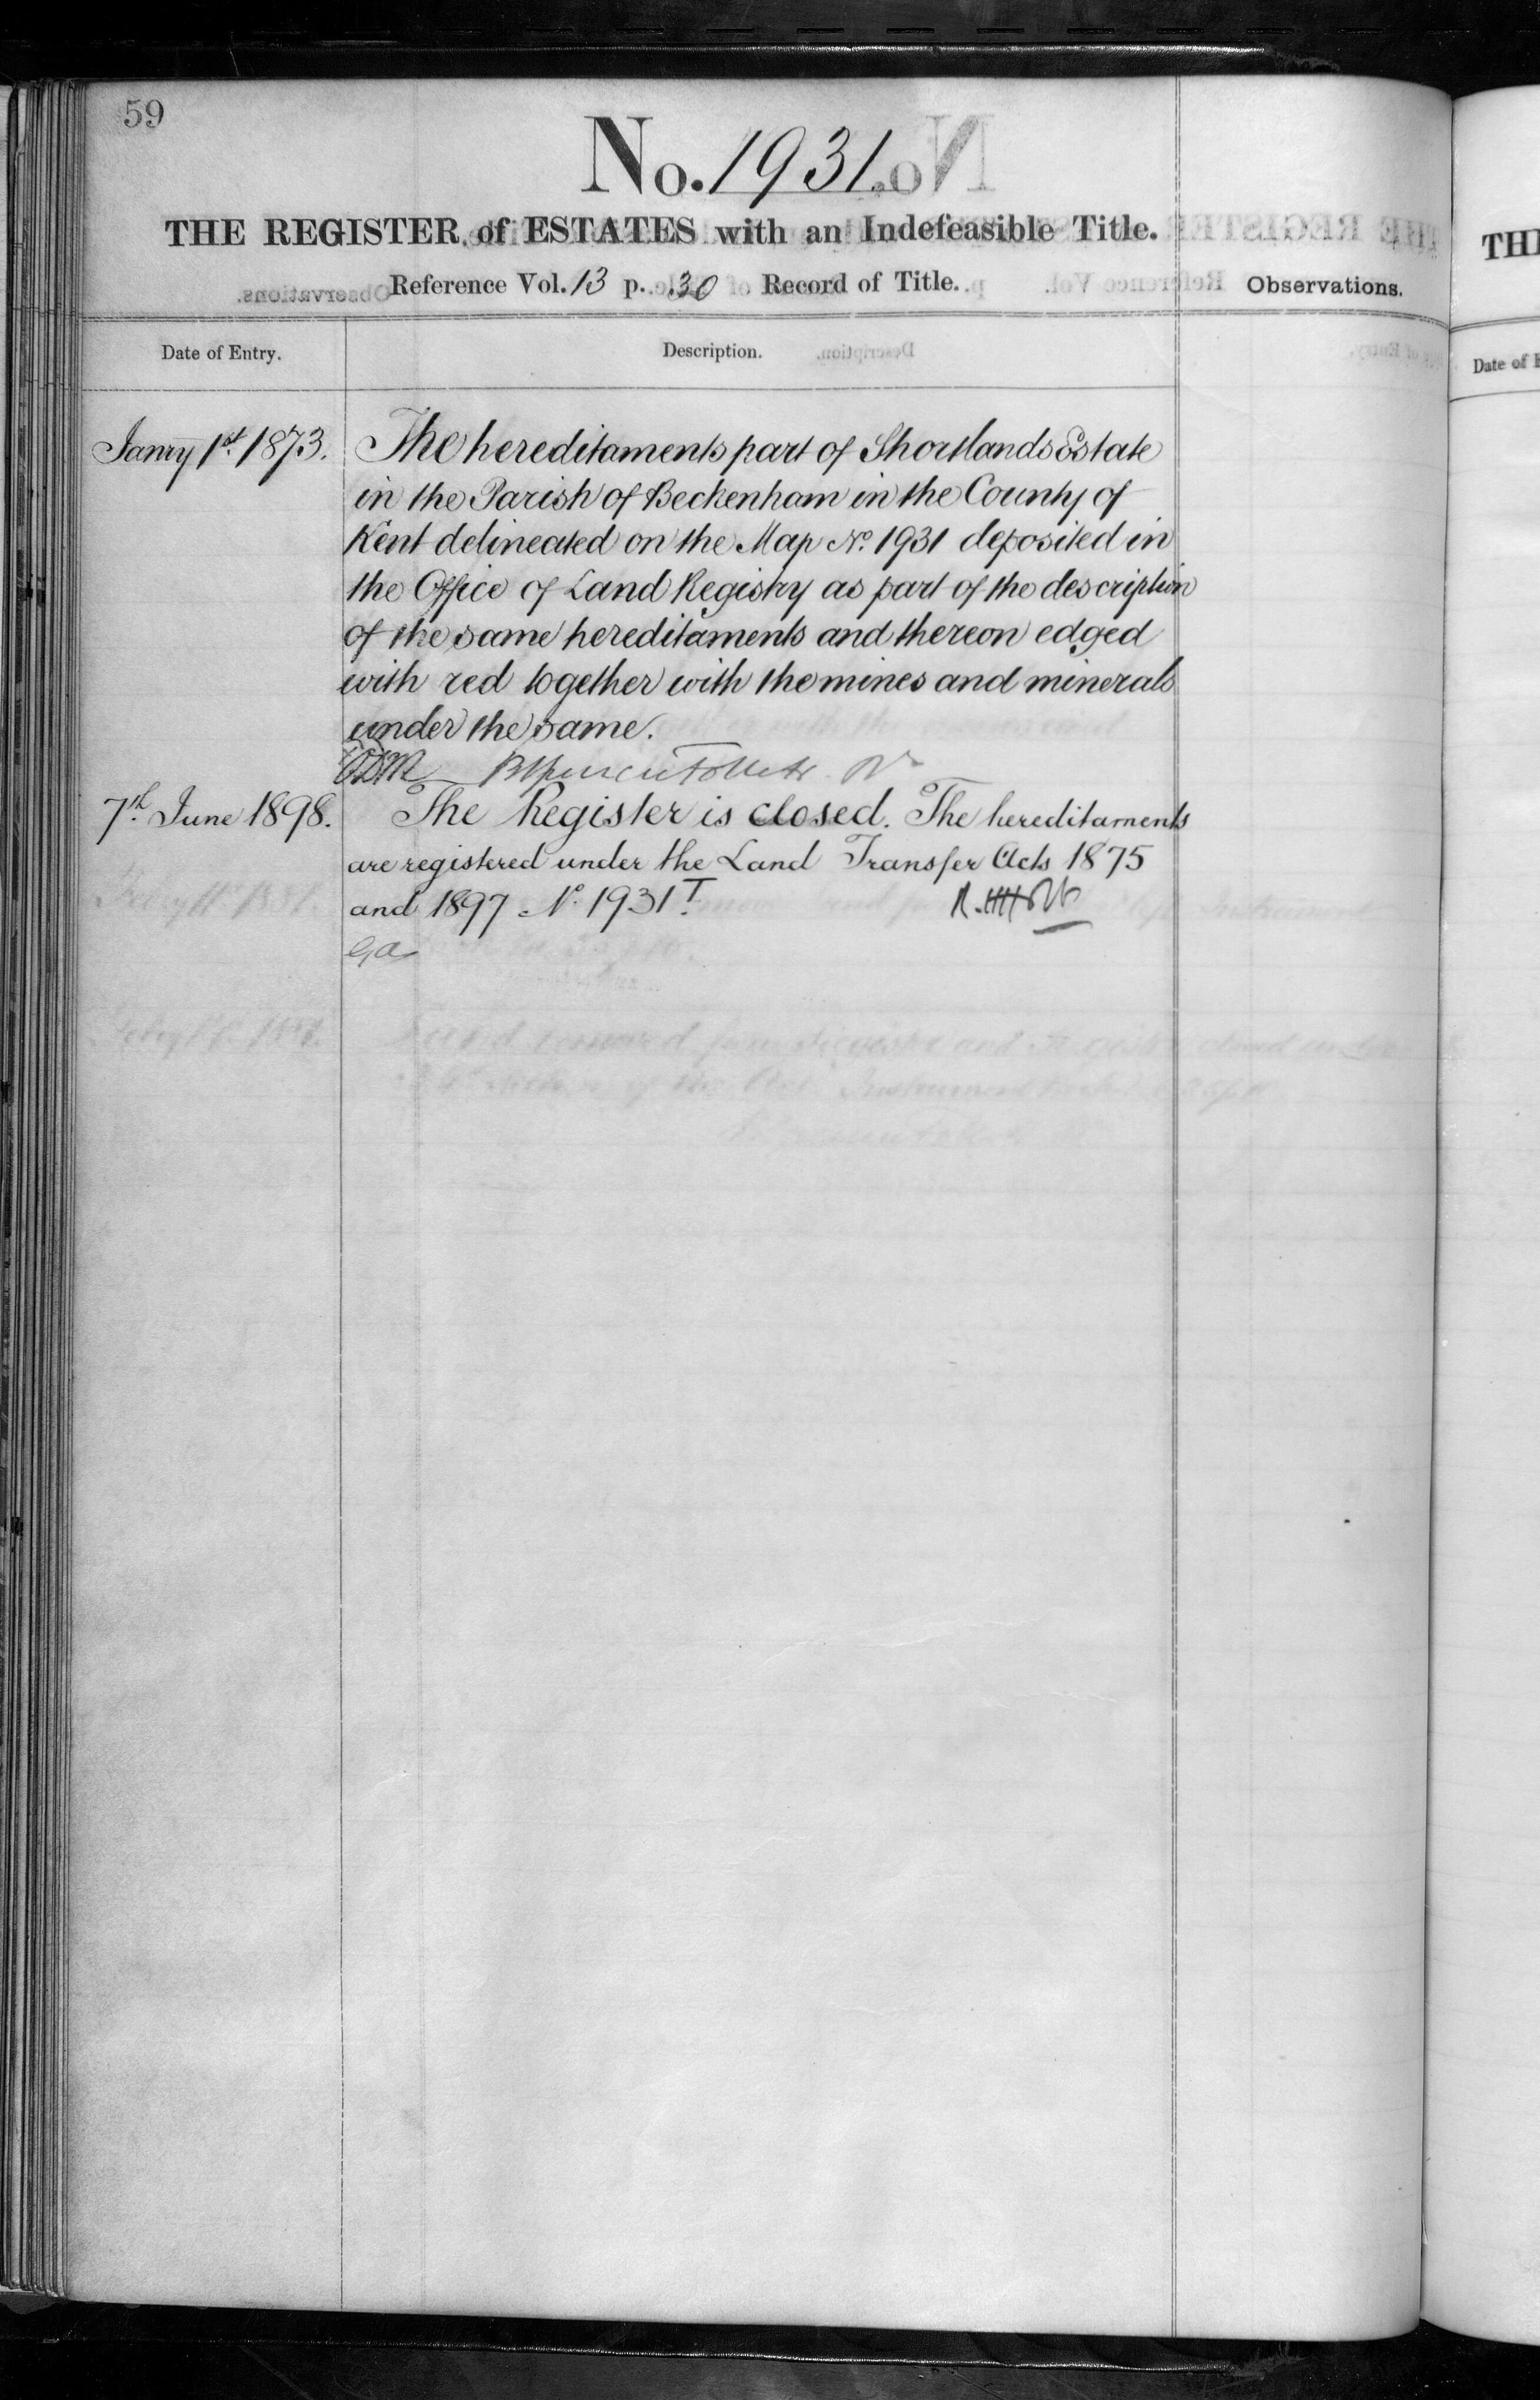 59
No. 1931.
THE REGISTER of ESTATES with an Indefeasible Title.
Reference Vol. 13 p. 30 Record of Title.
Observations.
Date of Entry.
Description.
Janry 1st. 1873.
The hereditaments part of Shortlands Estate
in the Parish of Beckenham in the County of
Kent delineated on the Map No. 1931 deposited in
the Office of Land Registry as part of the description
of the same hereditaments and thereon edged
with red together with the mines and minerals
under the same.
7th. June 1898.
The Register is closed. The hereditaments
are registered under the Land Transfer Acts 1875
and 1897 No. 1931T.
TH
Date of